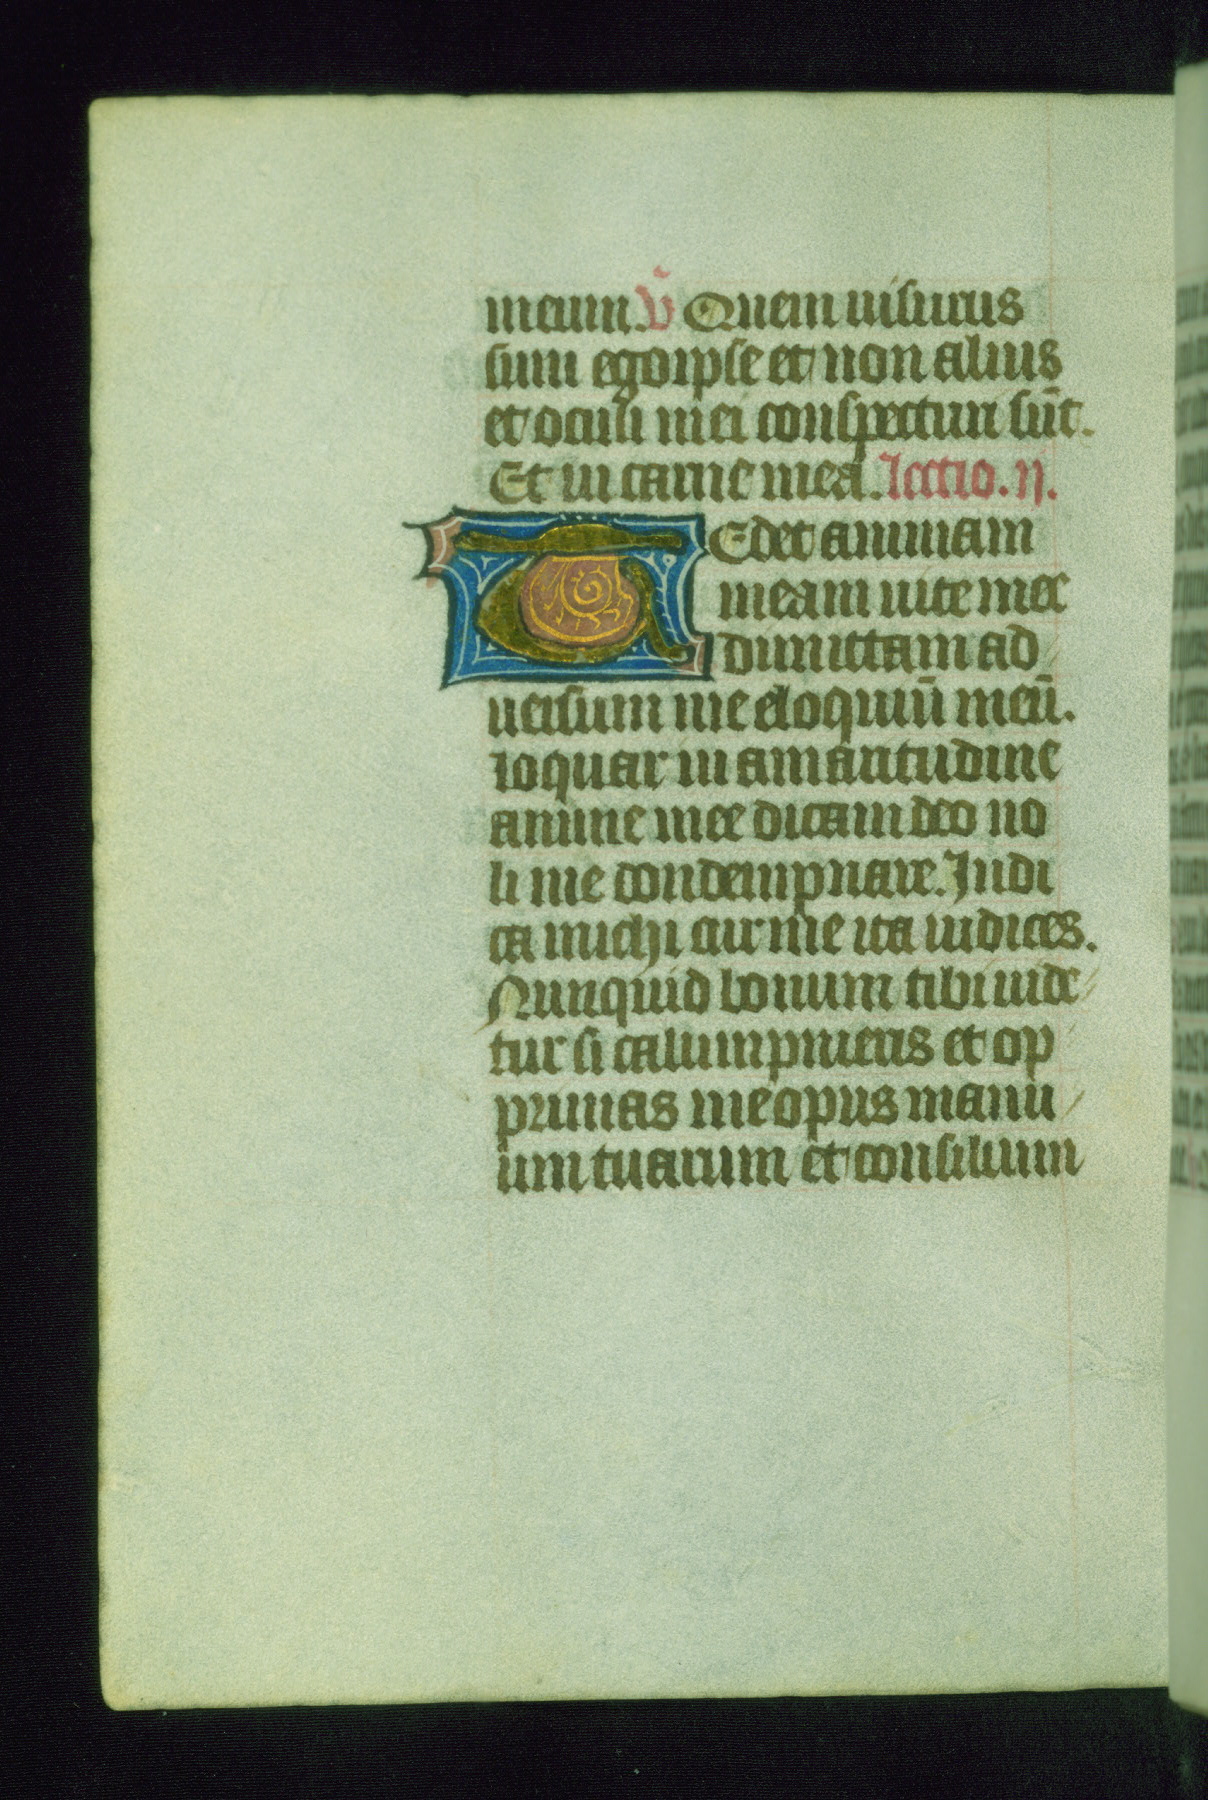 meum. v̄ Quem uisurus
sum ego ipse et non alius
et oculi mei conspecturi sūt.
Et in carne mea. lectio. ii.
Tedet animam
meam uite mee
dimittam ad
uersum me eloquiū meū.
loquar in amaritudine
anime mee dicam deo no
li me condempnare. Indi
ca michi cur me ita iudices.
Nunquid bonum tibi uide
tur si calumpnieris et op
primas me opus manu
um tuarum et consilium